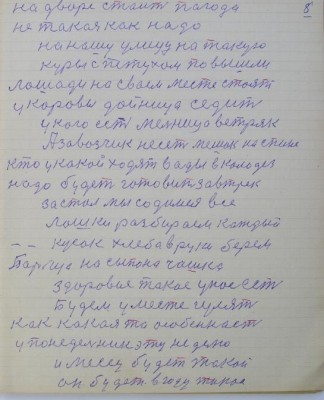 на дворе стоит пагода
8
не такая как надо
на нашу улицу на такую
куры с петухом повышли
лошади на своем месте стоят
у коровы дойница седит
у кого есть мелница ветряк
Азавозчик несет мешок на спине
кто у какой ходят вады в колодез
надо будет готовит завтрек
застол мы содимся все
лошки разбираем каждый
-- кусок хлеба в руки берем
Борще насыпона чашка
здоровье такое у нас есть
Будем у месте гулят
как какая то особеннаст
у понеделник эту неделю
и месец будет такой
он будет в году такое